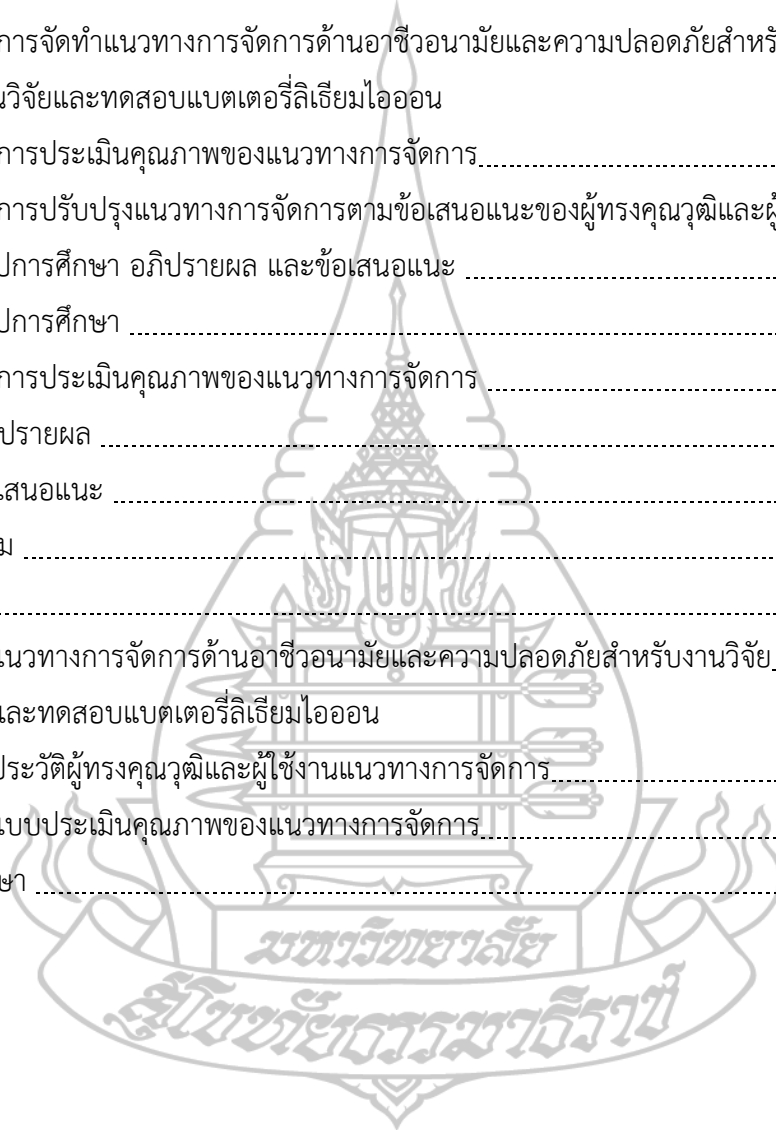 การจัดทำแนวทางการจัดการด้านอาชีวอนามัยและความปลอดภัยสำหรั
นวิจัยและทดสอบแบตเตอรี่ลิเธียมไอออน
การประเมินคุณภาพของแนวทางการจัดการ
การปรับปรุงแนวทางการจัดการตามข้อเสนอแนะของผู้ทรงคุณวุฒิและผู้
ปการศึกษา อภิปรายผล และข้อเสนอแนะ
ปการศึกษา
การประเมินคุณภาพของแนวทางการจัดการ
ปรายผล
เสนอแนะ
ม
แนวทางการจัดการด้านอาชีวอนามัยและความปลอดภัยสำหรับงานวิจัย
และทดสอบแบตเตอรี่ลิเธียมไอออน
ประวัติผู้ทรงคุณวุฒิและผู้ใช้งานแนวทางการจัดการ
แบบประเมินคุณภาพของแนวทางการจัดการ
ษา
มหาวิทยาลัย
สุโขทัยธรรมาธิราช